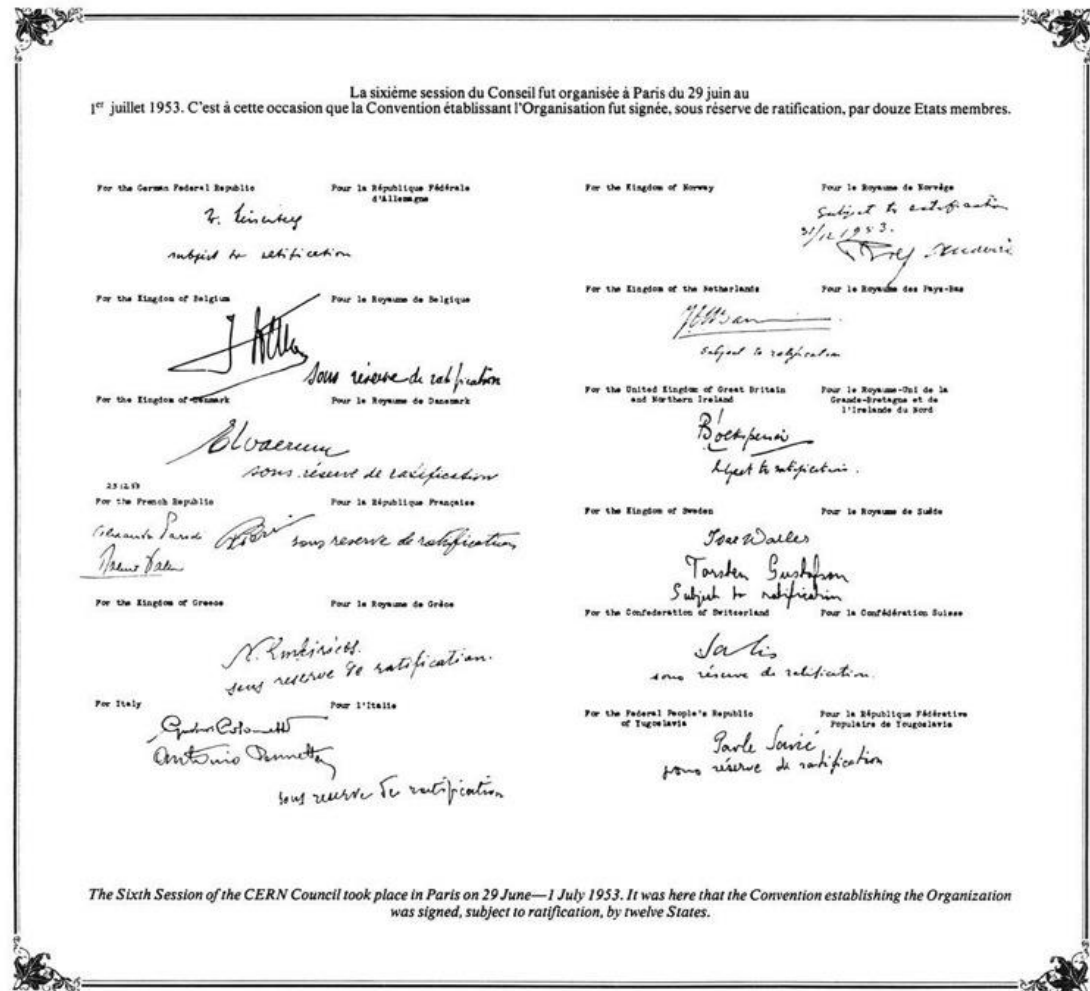 La sixième session du Conseil fut organisée à Paris du 29 juin au
1er juillet 1953. C'est à cette occasion que la Convention établissant l'Organisation fut signée, sous réserve de ratification, par douze Etats membres.
For the German Federal Republic
Pour la République Fédérale
d'Allemagne
subject to ratification
For the Kingdom of Belgium
Pour le Royaume de Belgique
sous réserve de ratification
For the Kingdom of Denmark
Pour le Royaume de Danemark
sous réserve de ratification
23.12.53
For the French Republic
Pour la République Française
sous reserve de ratification
For the Kingdom of Greece
Pour le Royaume de Grèce
sous reserve de ratification.
For Italy
Pour l'Italie
Antonio
sous reserve de ratification
For the Kingdom of Norway
Pour le Royaume de Norvège
Subject to ratification
31/12 1953.
For the Kingdom of the Netherlands
Pour le Royaume des Pays-Bas
subject to ratification
For the United Kingdom of Great Britain
and Northern Ireland
Pour le Royaume-Uni de la
Grande-Bretagne et de
l'Irelande du Nord
subject to ratification.
For the Kingdom of Sweden
Pour le Royaume de Suède
Ivar Waller
Torsten Gustafson
Subject to ratification
For the Confederation of Switzerland
Pour la Confédération Suisse
Salis
sous réserve de ratification.
For the Federal People's Republic
of Yugoslavia
Pour la République Fédérative
Populaire de Yougoslavie
Pavle Savić
sous réserve de ratification
The Sixth Session of the CERN Council took place in Paris on 29 June—1 July 1953. It was here that the Convention establishing the Organization
was signed, subject to ratification, by twelve States.